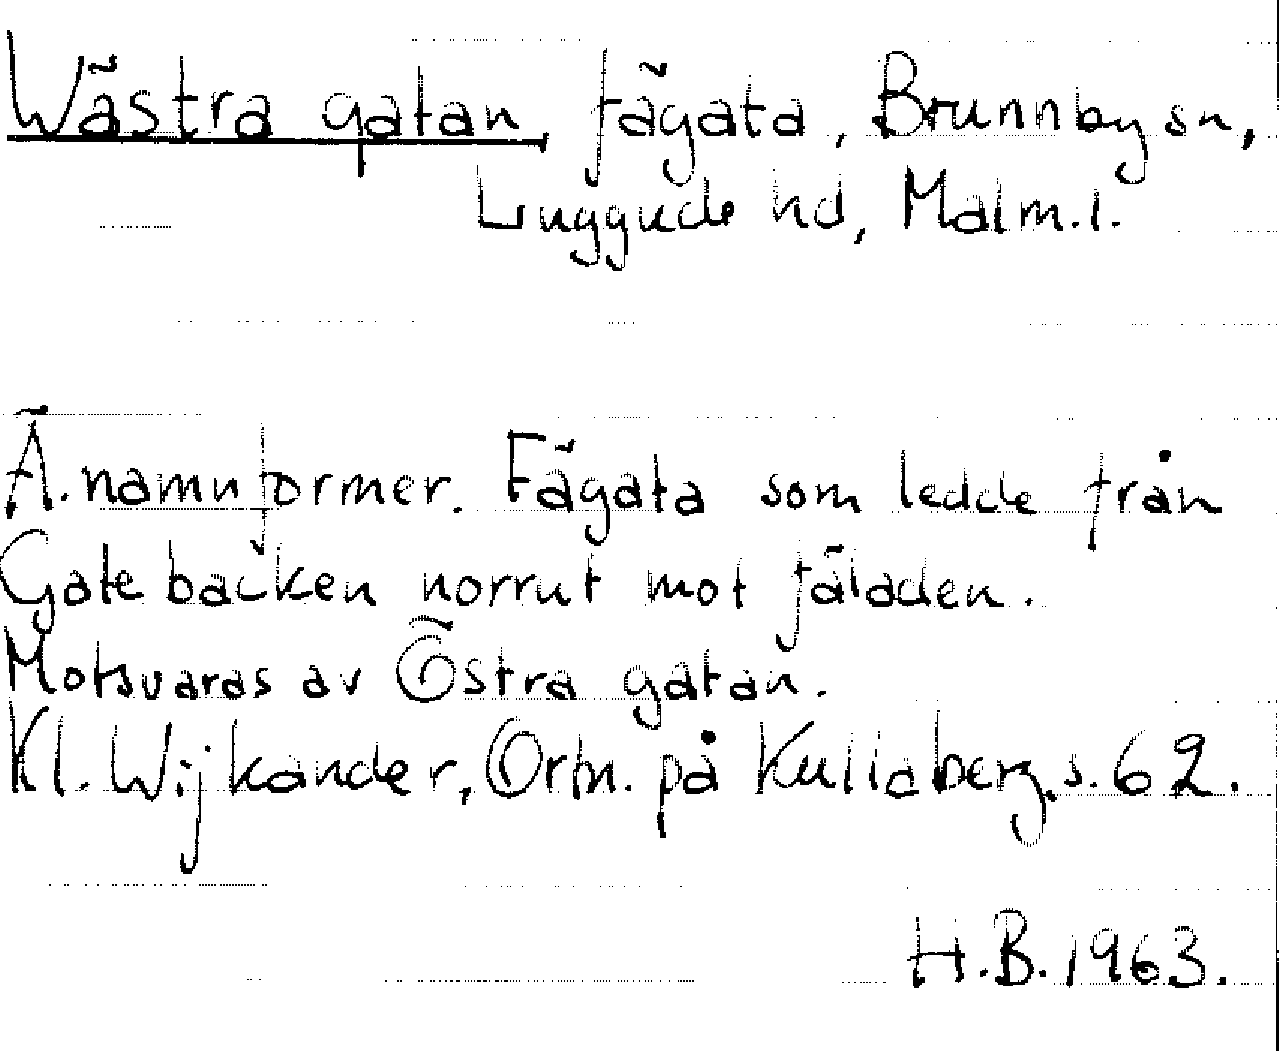 Wästra gatan fägata, Brunnby sn,
Luggude hd, Malm.l.
Ä. namnformer. Fägata som ledde från
Gatebäcken norrut mot fäladen.
Motsvaras av Östra gatan.
Kl. Wijkander, Ortn. på Kullaberg, s. 62.
H.B. 1963.